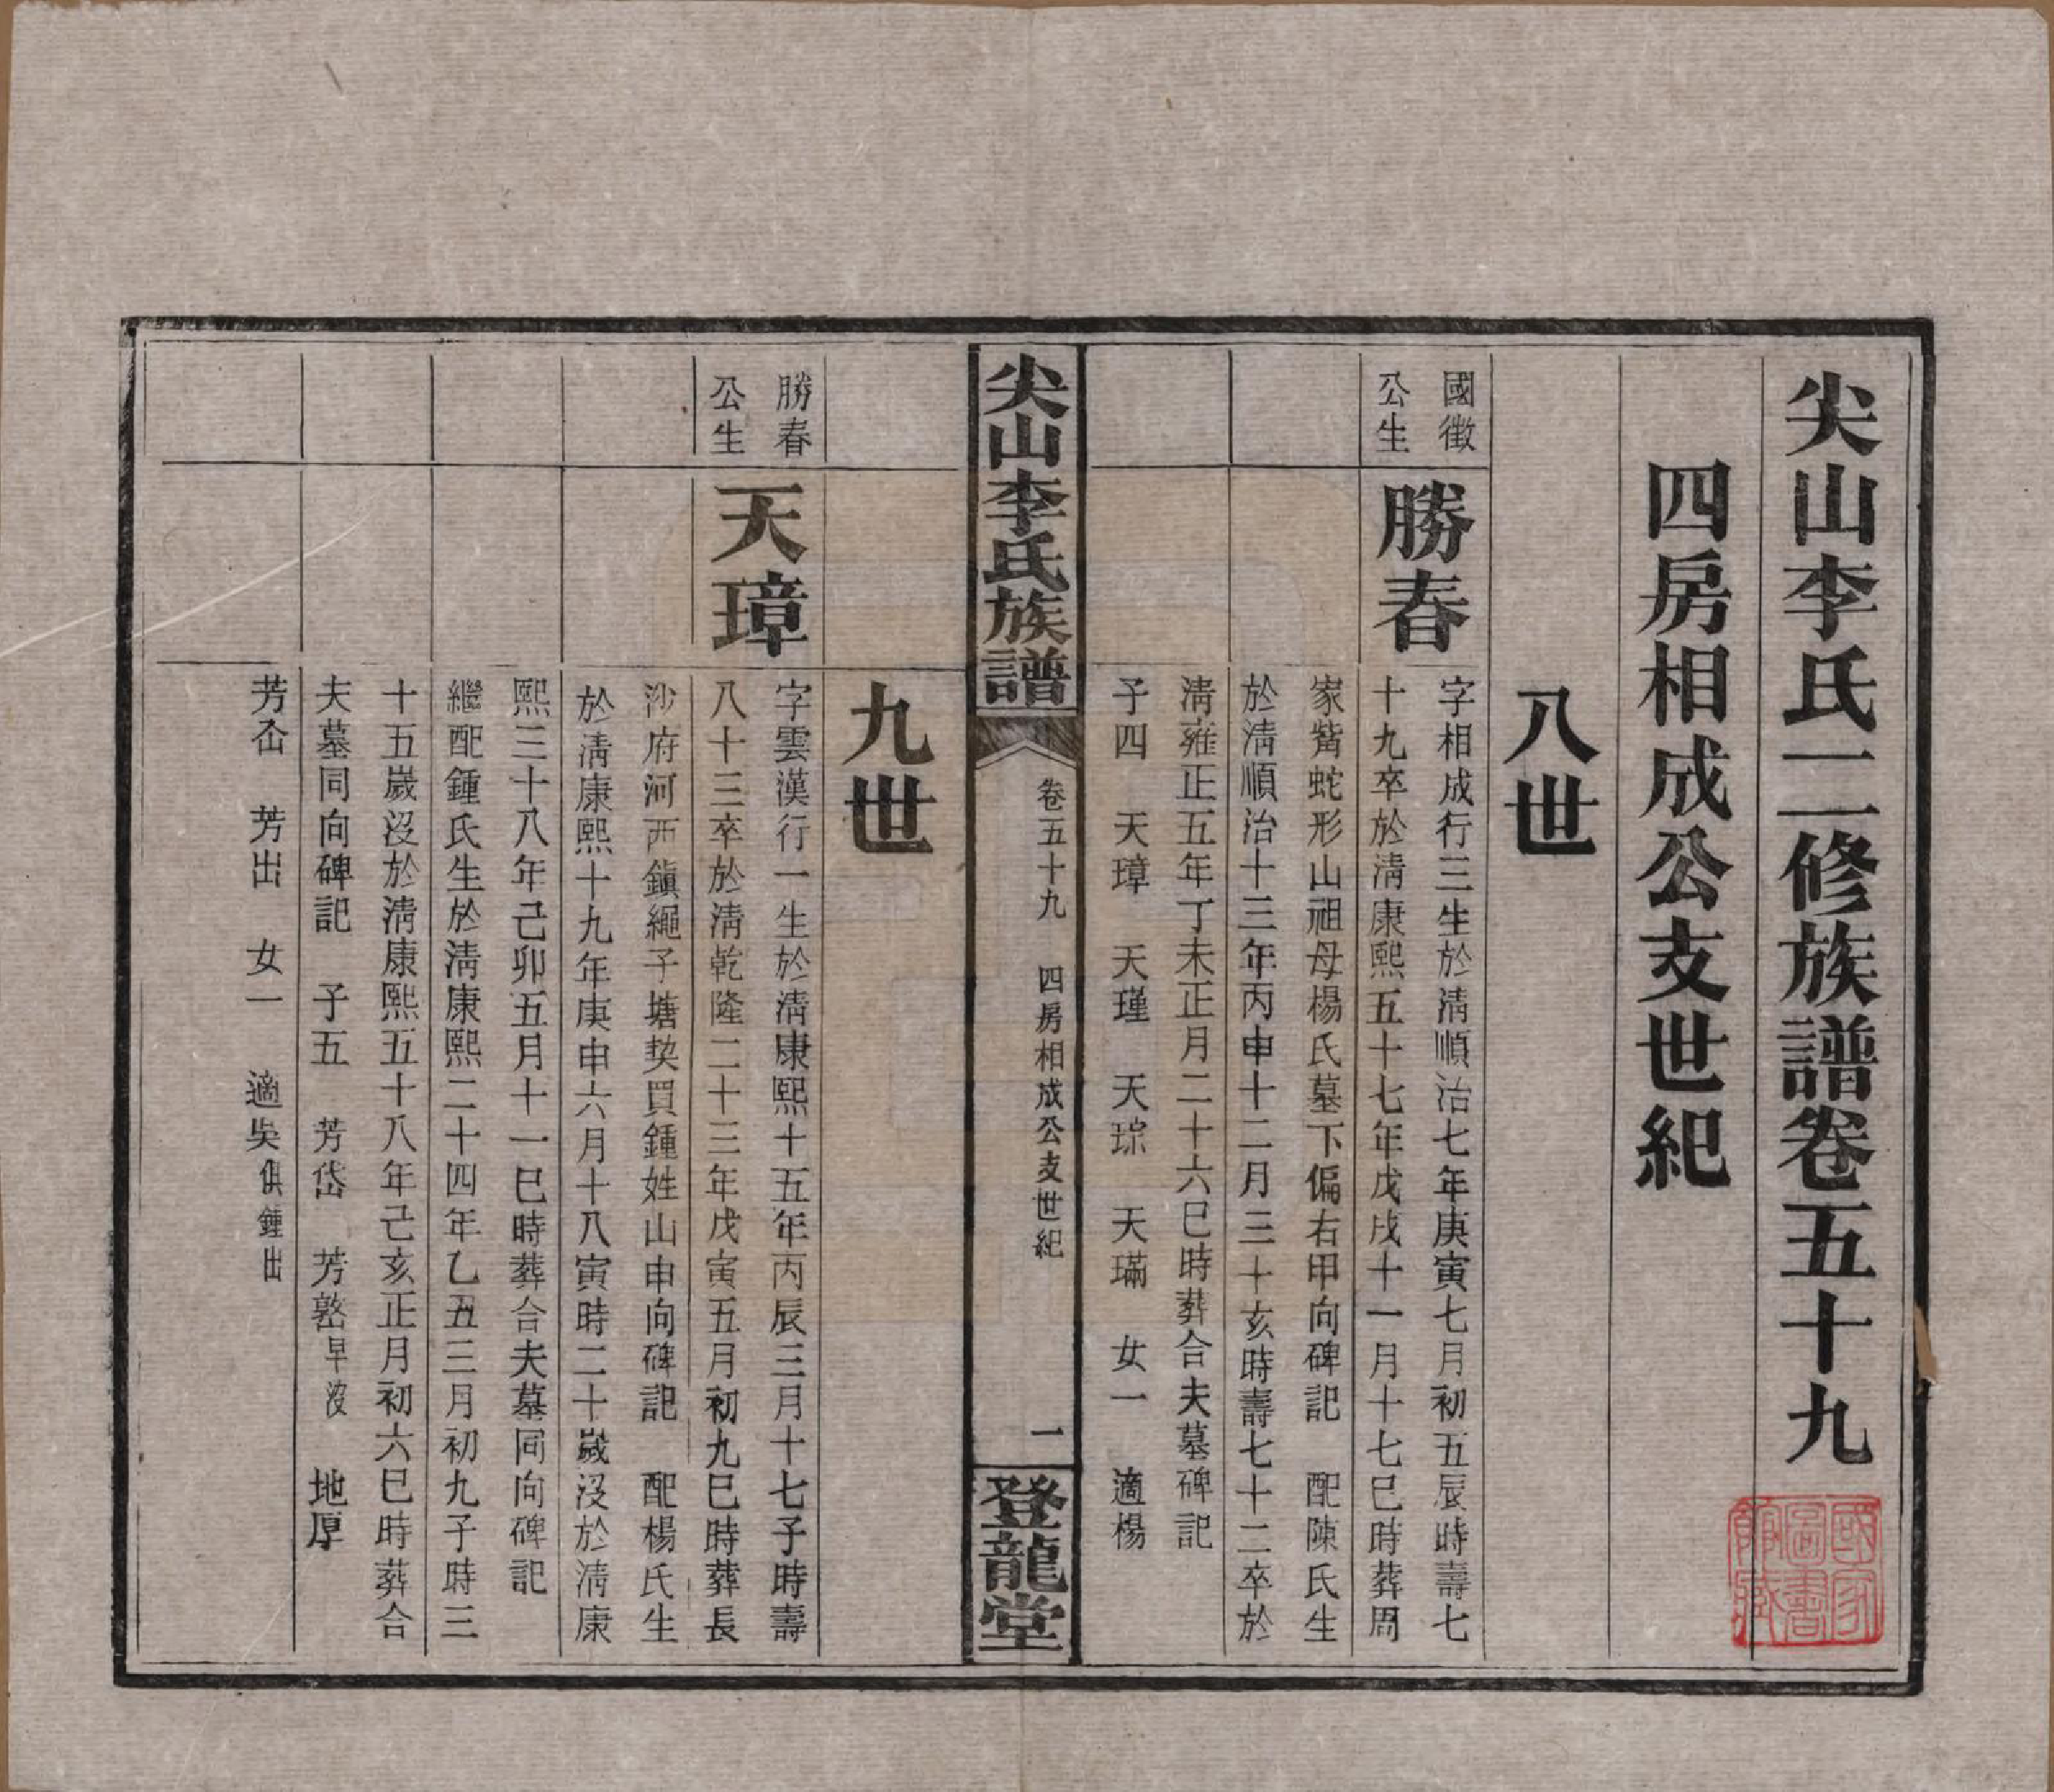 尖山李氏二修族譜卷五十九
四房相成公支世紀
八世
國徵
公生
勝春
字相成行三生於淸順治七年庚寅七月初五辰時壽七
十九卒於淸康熙五十七年戊戌十一月十七巳時葬周
家觜蛇形山祖母楊氏墓下偏右甲向碑記　配陳氏生
於淸順治十三年丙申十二月三十亥時壽七十二卒於
淸雍正五年丁未正月二十六巳時葬合夫墓碑記
子四　天璋　天瑾　天琮　天瑞　女一　適楊
尖山李氏族譜
卷五十九　四房相成公支世紀
一
登龍堂
九世
勝春
公生
天璋
字雲漢行一生於淸康熙十五年丙辰三月十七子時壽
八十三卒於淸乾隆二十三年戊寅五月初九巳時葬長
沙府河西鎭繩子塘契買鍾姓山申向碑記　配楊氏生
於淸康熙十九年庚申六月十八寅時二十歲沒於淸康
熙三十八年己卯五月十一巳時葬合夫墓同向碑記
繼配鍾氏生於淸康熙二十四年乙丑三月初九子時三
十五歲沒於淸康熙五十八年己亥正月初六巳時葬合
夫墓同向碑記　子五　芳岱　芳嶅早沒　地厚
芳㟋　芳出　女一　適吳俱鍾出
國家圖書館藏